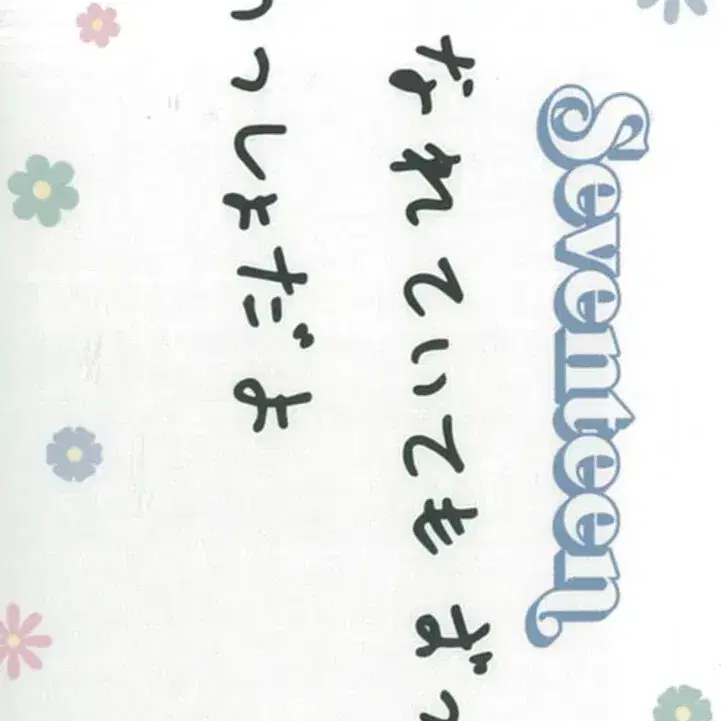 Seventeen
なれていても ずっ
っしょだよ